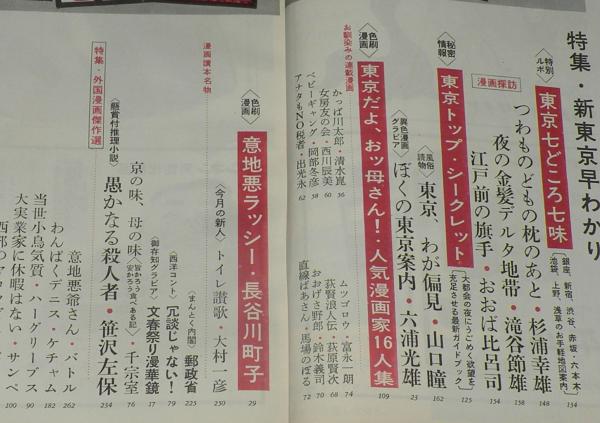 特集・新東京早わかり
〈特別ルポ〉東京七どころ七味〔銀座、新宿、渋谷、赤坂、六本木、池袋、上野、浅草のお手軽地図案内〕 134
漫画探訪
つわものどもの枕のあと・杉浦幸雄 148
夜の金髪デルタ地帯・滝谷節雄 158
江戸前の旗手・おおば比呂司 154
〈秘密情報〉東京トップ・シークレット〔大都会の夜にうごめく欲望を充足させる最新ガイドブック〕 125
〈風俗読物〉東京、わが偏見・山口瞳 162
〈異色漫画グラビア〉ぼくの東京案内・六浦光雄 23
〈色刷漫画〉東京だよ、おッ母さん!・人気漫画家16人集 109
お馴染みの連載漫画
かっぱ川太郎・清水崑 56
女房友の会・西川辰美 60
ベビーギャング・岡部冬彦 58
アナタもNO税者・出光永 62
ムツゴロウ・富永一朗 74
荻賢浪人伝・荻原賢次 68
おおげさ野郎・鈴木義司 70
直線ばあさん・馬場のぼる 72
漫画讀本名物
〈色刷漫画〉意地悪ラッシー・長谷川町子 29
〈今月の新人〉トイレ讃歌・大村一彦 250
〈まんとく内閣〉郵政省 225
〈西洋コント〉冗談じゃない! 79
〈御存知グラビア〉文春祭り漫華鏡 17
京の味、母の味〈旨かろう安かろう食べある記〉・千宗室 76
〈懸賞付推理小説〉愚かなる殺人者・笹沢左保 234
特集・外国漫画傑作選
意地悪爺さん・バトル 262
わんぱくデニス・ケチャム 182
当世小鳥気質・ハーグリーブス 90
大実業家に休暇はない・サンペ 100